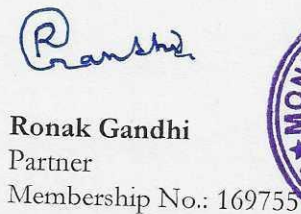 Ronak Gandhi
Partner
Membership No.: 169755